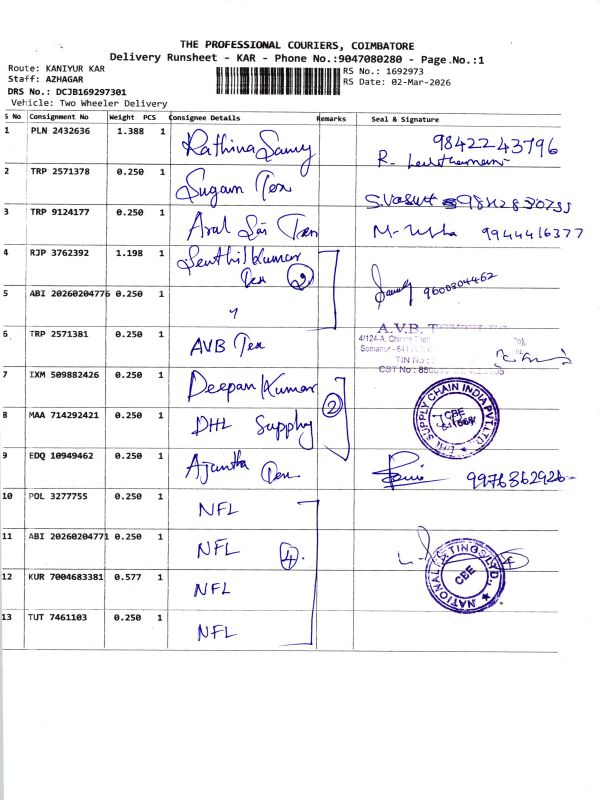 THE PROFESSIONAL COURIERS, COIMBATORE
Delivery Runsheet - KAR - Phone No.:9047080280 - Page.No.:1
Route: KANIYUR KAR
Staff: AZHAGAR
DRS No.: DCJB169297301
Vehicle: Two Wheeler Delivery
RS No.: 1692973
RS Date: 02-Mar-2026
S No Consignment No Weight PCS Consignee Details Remarks Seal & Signature
1 PLN 2432636 1.388 1 Rathina Samy 9842243796
R.
2 TRP 2571378 0.250 1 Sugam Tex
3 TRP 9124177 0.250 1 Aral Sai Tex M. Usha 9944416377
4 RJP 3762392 1.198 1 Senthil Kumar
Tex 2
9600304462
5 ABI 20260204776 0.250 1 "
6 TRP 2571381 0.250 1 AVB Tex A.V.B.
4/124-A,
Somanur - 641
TIN No :
CST No :
7 IXM 509882426 0.250 1 Deepan Kumar
2
8 MAA 714292421 0.250 1 DHL Supply SUPPLY CHAIN INDIA PVT. LTD.
CBE
9 EDQ 10949462 0.250 1 Ajantha Tex 9976362926
10 POL 3277755 0.250 1 NFL
11 ABI 20260204771 0.250 1 NFL 4
12 KUR 7004683381 0.577 1 NFL NATIONAL FITTINGS LTD.
CBE
13 TUT 7461103 0.250 1 NFL